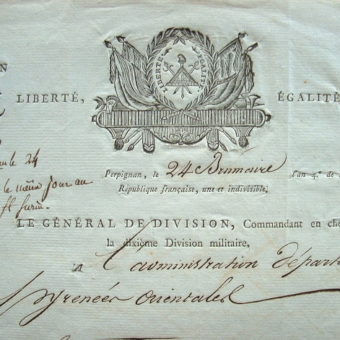 N
LIBERTÉ, ÉGALITÉ
LIBERTÉ ÉGALITÉ
24
le même jour au
Perpignan, le 24 Brumaire l'an 4.e de
République française, une et indivisible,
LE GÉNÉRAL DE DIVISION, Commandant en che
la dixième Division militaire,
a l'administration départ
Pyrenées orientales